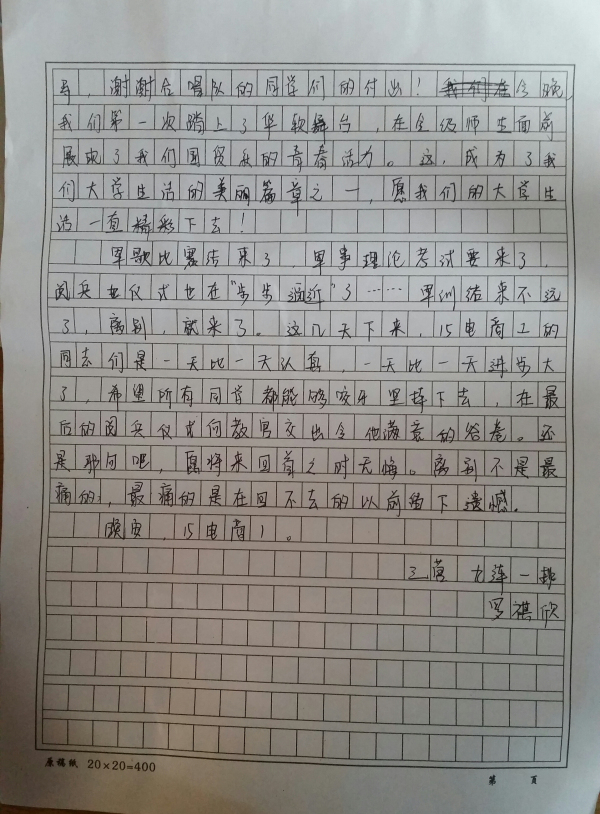 导，谢谢合唱队的同学们的付出！今晚，
我们第一次踏上了华软舞台，在全级师生面前
展现了我们国贸系的青春活力。这，成为了我
们大学生活的美丽篇章之一，愿我们的大学生
活一直精彩下去！
军歌比赛结束了，军事理论考试要来了，
阅兵仪式也在“步步逼近”了……军训结束不远
了，离别，就来了。这几天下来，15电商1的
同志们是一天比一天认真，一天比一天进步大
了，希望所有同学都能够咬牙坚持下去，在最
后的阅兵仪式向教官交出令他满意的答卷。还
是那句吧，愿将来回首之时无悔。离别不是最
痛的，最痛的是在回不去的以前留下遗憾。
晚安，15电商1。
三营 九连一排
罗祺欣
原稿纸 20×20=400
第 页